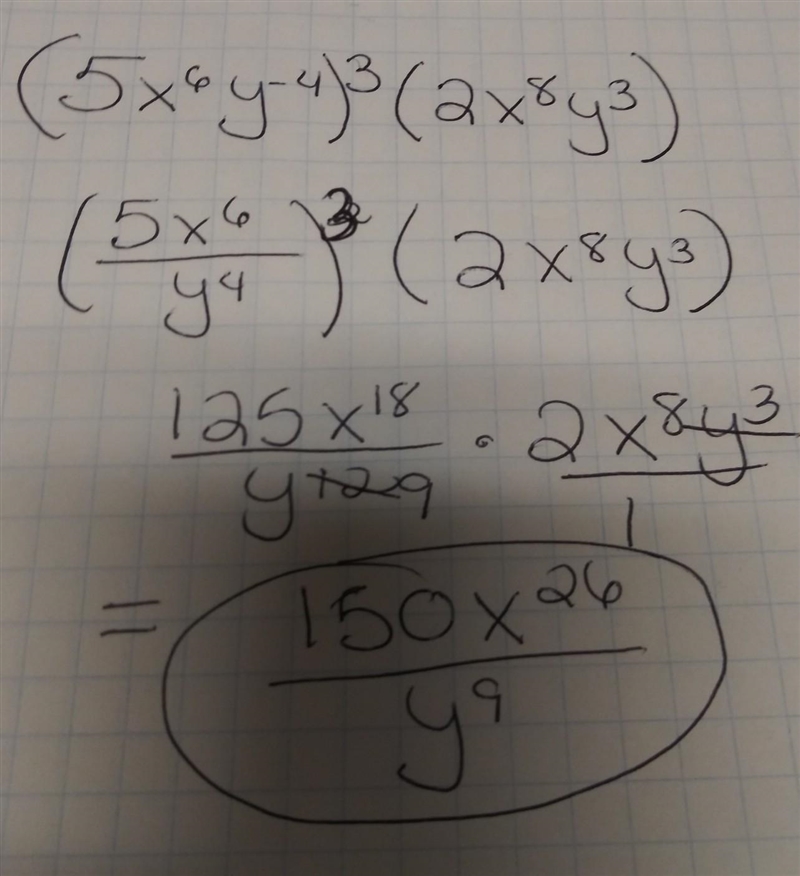 (5x⁶y⁻⁴)³(2x⁸y³)
(5x⁶/y⁴)³(2x⁸y³)
125x¹⁸/y¹²⁹ · 2x⁸y³/1
= 150x²⁶/y⁹